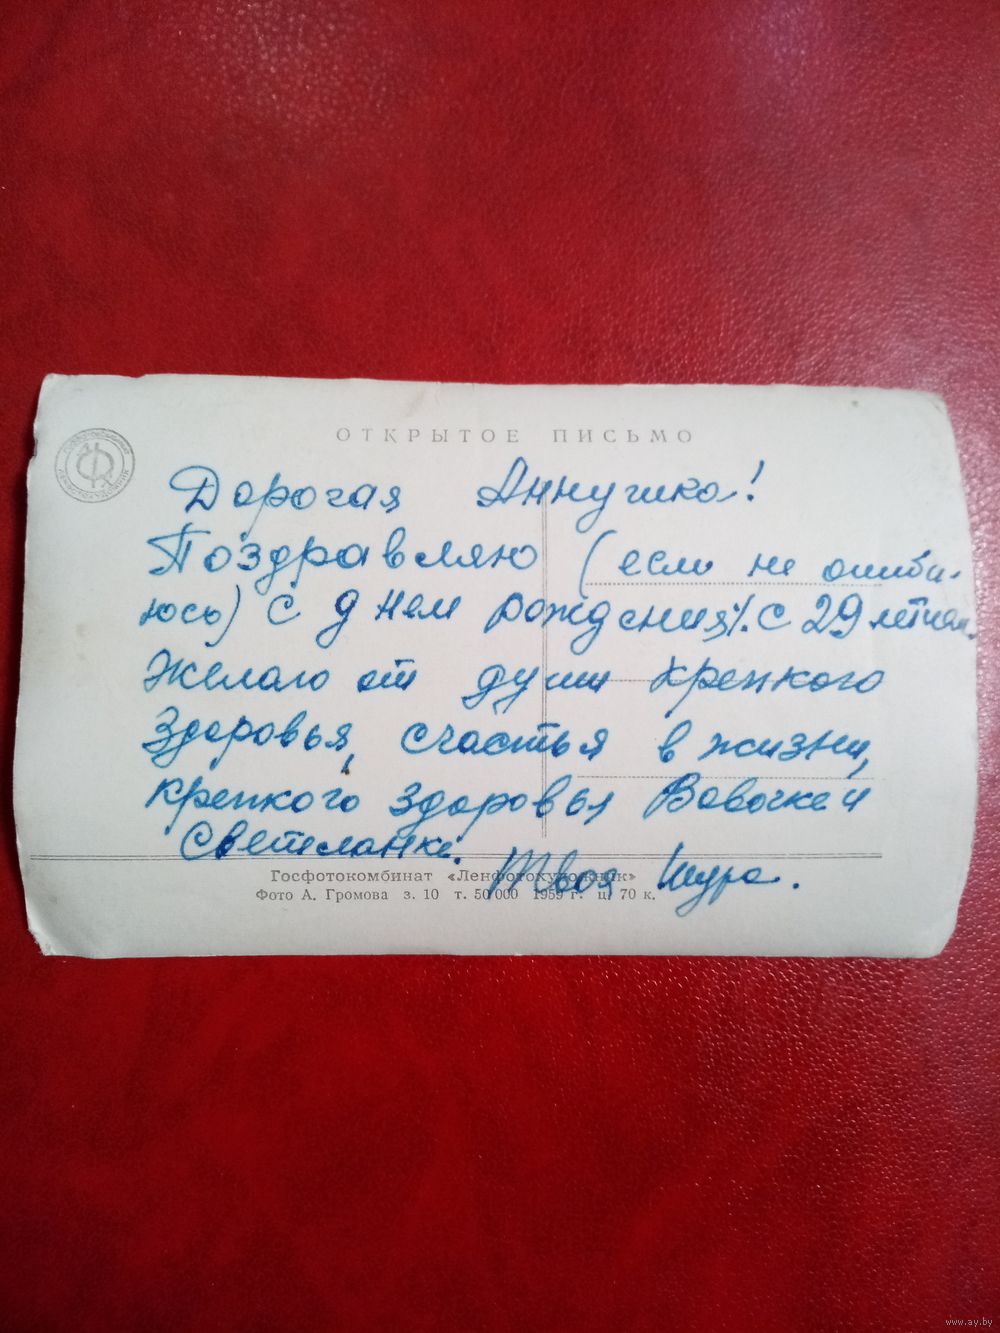 ОТКРЫТОЕ ПИСЬМО
Дорогая Аннушка!
Поздравляю (если не ошиба-
юсь) с днем рождения! с 29 летием.
Желаю от души крепкого
здоровья, счастья в жизни,
крепкого здоровья Вовочке и
Светланке.
Твоя Шура.
Госфотокомбинат «Ленфотохудожник»
Фото А. Громова з. 10 т. 50 000 1959 г. ц. 70 к.
www.ay.by